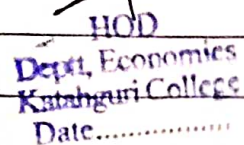 HOD
Deptt, Economics
Katahguri College
Date..................